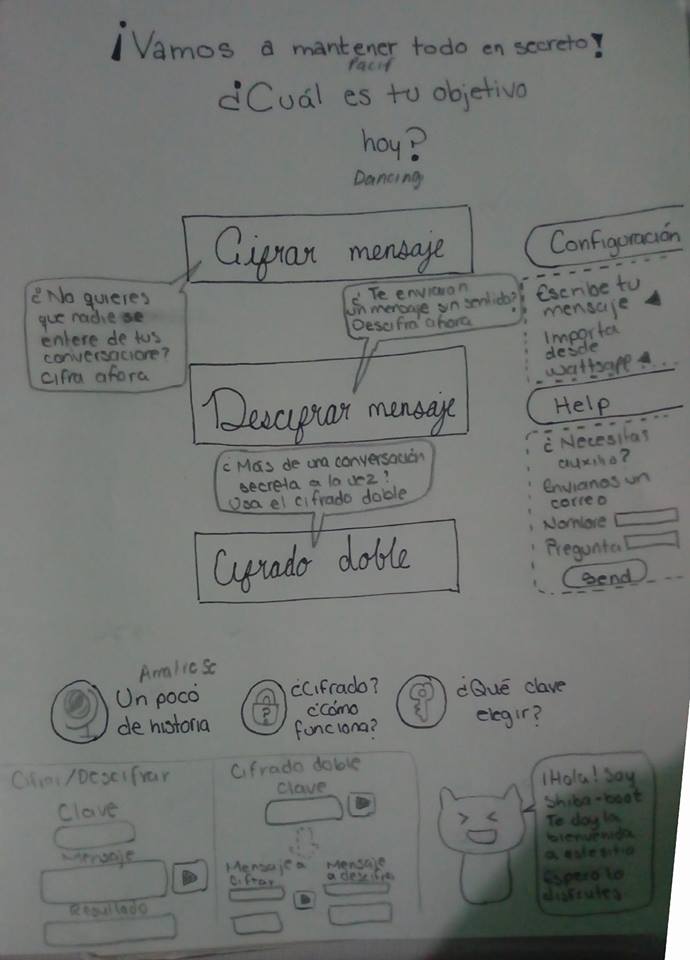 ¡Vamos a mantener todo en secreto!
Pacif
¿Cuál es tu objetivo
hoy?
Dancing
Cifrar mensaje
¿No quieres
que nadie se
entere de tus
conversacione?
Cifra ahora
¿Te enviaron
un mensaje sin sentido?
Descifra ahora
Descifrar mensaje
¿Más de una conversación
secreta a la vez?
Usa el cifrado doble
Cifrado doble
Configuración
Escribe tu
mensaje
Importa
desde
wattsapp
Help
¿Necesitas
auxilio?
Envianos un
correo
Nombre
Pregunta
Send
Amatic Sc
Un poco
de historia
¿Cifrado?
¿Cómo
funciona?
¿Qué clave
elegir?
Cifrar/Descifrar
Clave
Mensaje
Resultado
Cifrado doble
Clave
Mensaje a
cifrar
Mensaje
a descifrar
¡Hola! Soy
Shiba-boot
Te doy la
bienvenida
a este sitio
Espero lo
disfrutes